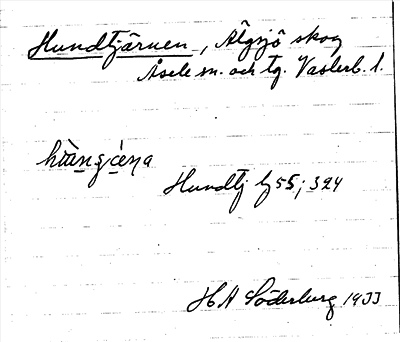 Hundtjärnen, Älgsjö skog
Åsele sn. och tg. Vasterb. l.
Hundtj 55; 324
H A Söderberg 1933